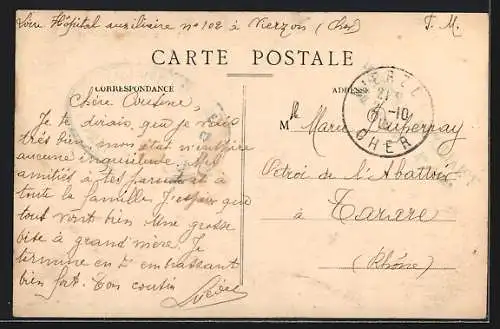 Hôpital auxiliaire n° 102 à Vierzon (Cher) F. M.
CARTE POSTALE
CORRESPONDANCE
ADRESSE
Chère Cousine,
Je te dirais, que je vais
très bien, mon état n'inspire
aucune inquiétude. Mes
amitiés à tes parents et à
toute la famille J'espère que
tout vont bien Une grosse
bise à grand'mère. Je
termine en t' embrassant
bien fort. Ton cousin
Mlle Marie
Octroi de l'Abattoir
à Tarare
(Rhône)
CHER